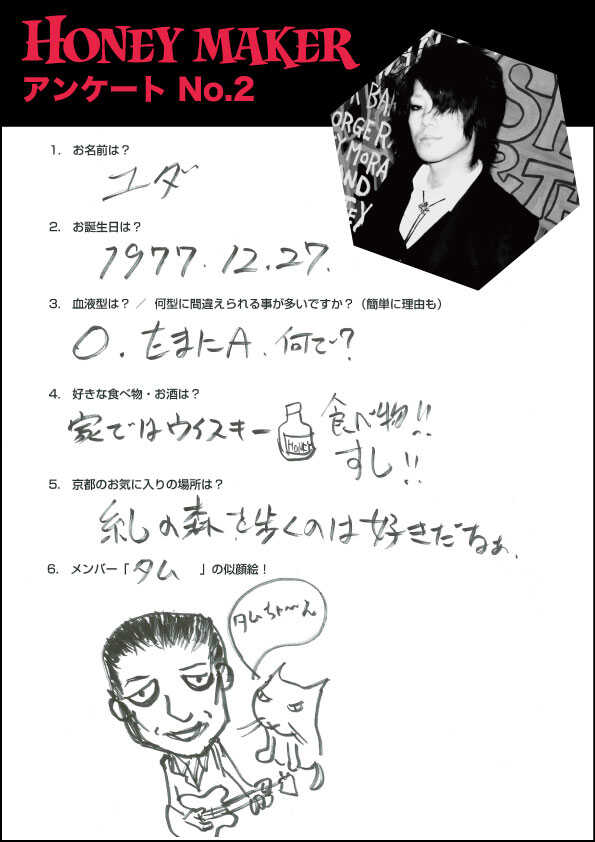 HONEY MAKER
アンケート No.2
1. お名前は？
ユダ
2. お誕生日は？
1977.12.27.
3. 血液型は？ ／ 何型に間違えられる事が多いですか？（簡単に理由も）
O.たまにA.何で?
4. 好きな食べ物・お酒は？
家ではウイスキー
HONEY
食べ物!!
すし!!
5. 京都のお気に入りの場所は？
糺の森を歩くのは好きだなぁ、
6. メンバー「 タム 」の似顔絵！
タムちゃ〜ん
BA
ORGER
MORA
AND